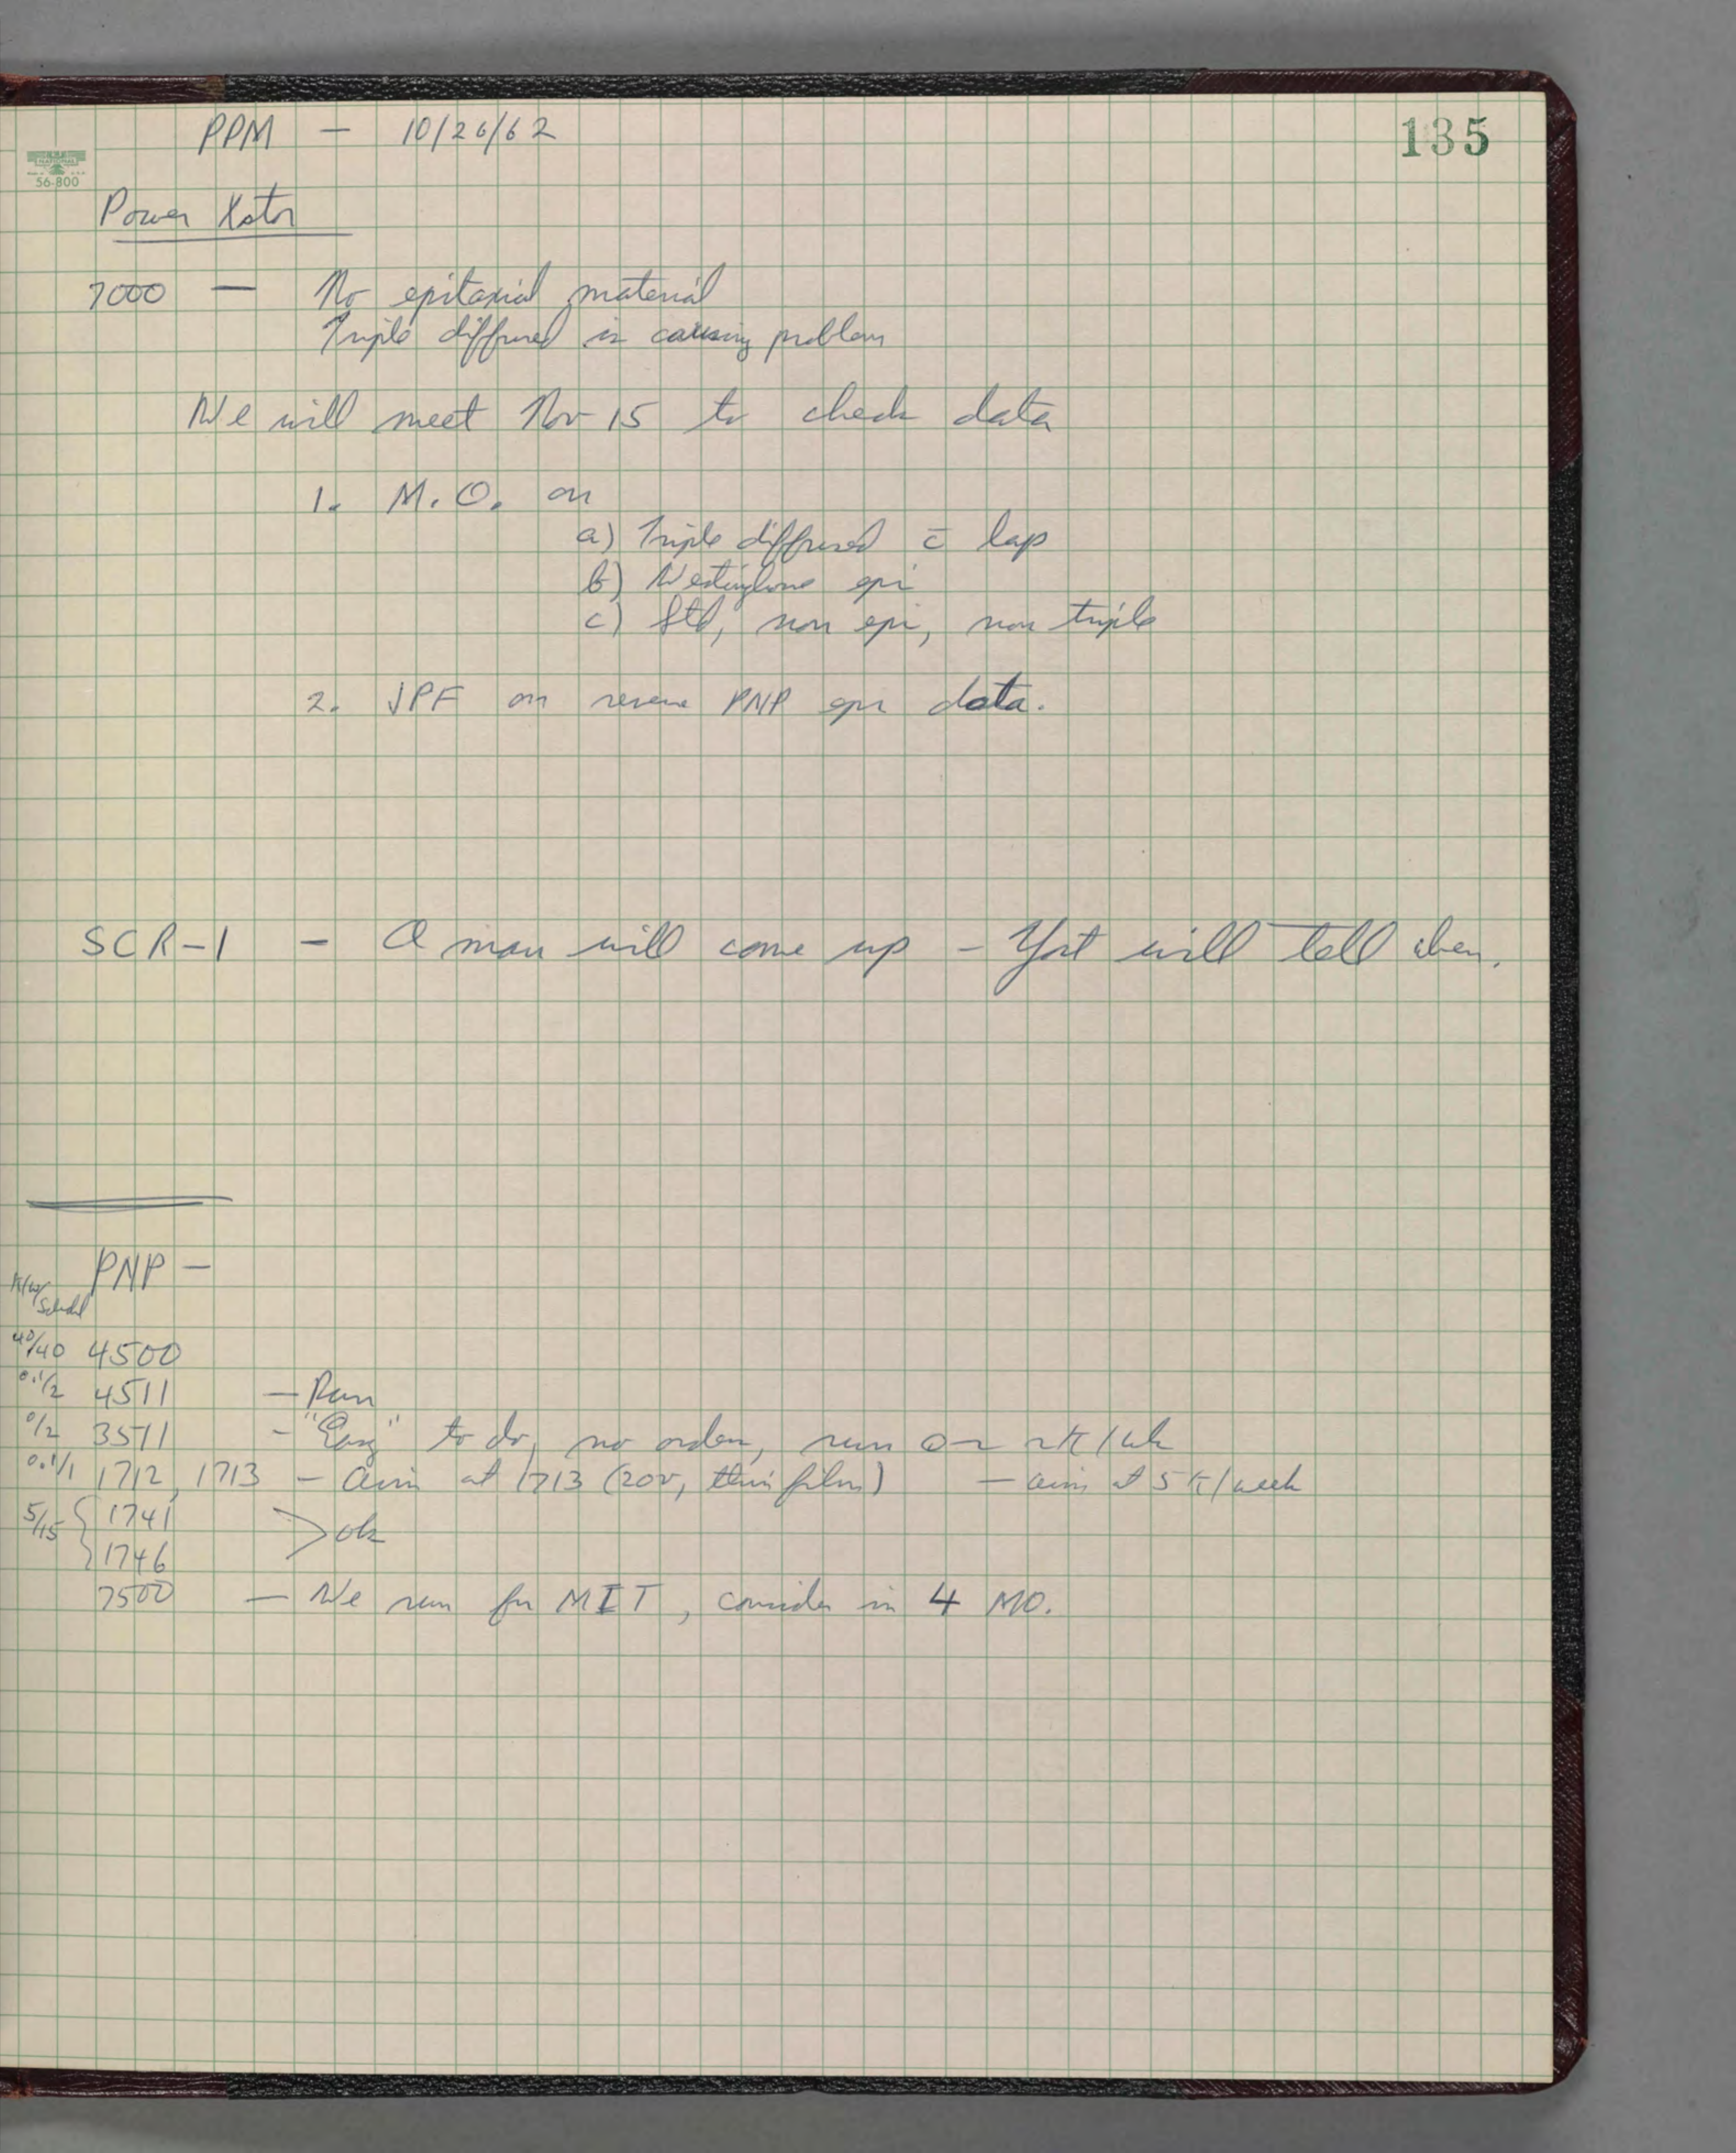 135
PPM — 10/26/62
NATIONAL
56-800
Power Xstor
7000 — No epitaxial material
Triple diffused is causing problem
We will meet Nov 15 to check data
1. M.O. on
a) Triple diffused c̄ lap
b) Westinghouse epi
c) Std, non epi, non triple
2. JPF on reverse PNP epi data.
SCR-1 - A man will come up - Yost will tell when.
PNP —
K/w/
Sched
40/40 4500
0.1/2 4511 — Run
0/2 3511 - "Easy" to do, no orders, run 0 - 2K/wk
0.1/1 1712, 1713 - Aim at 1713 (20v, thin film) — aim at 5K/week
5/15 { 1741
1746 > ok
7500 — We run for MIT, consider in 4 MO.